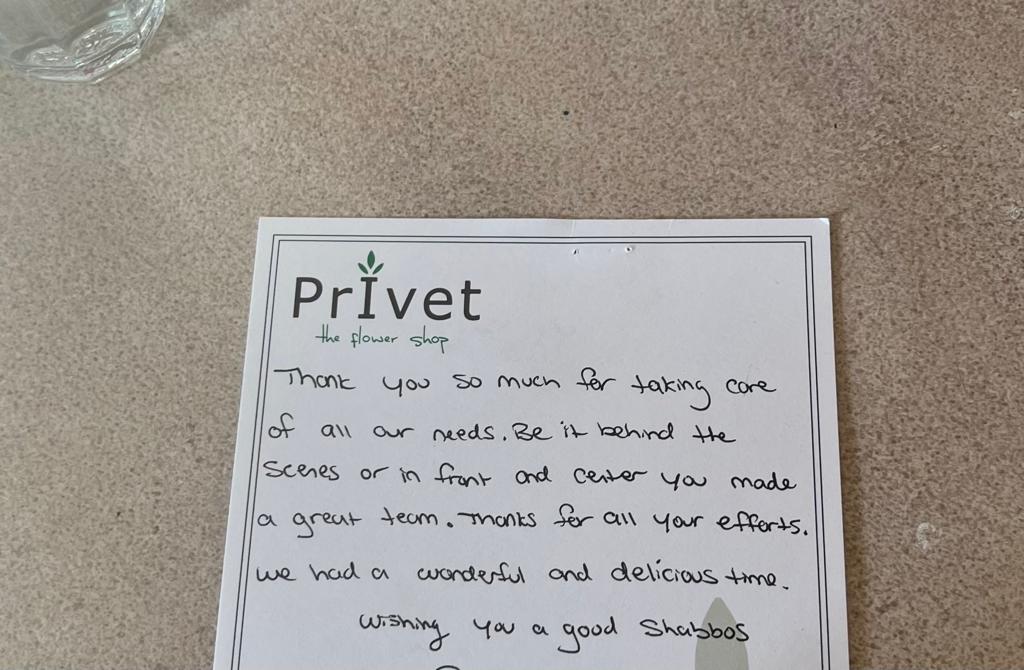 PrIvet
the flower shop
Thank you so much for taking care
of all our needs. Be it behind the
scenes or in front and center you made
a great team. Thanks for all your efforts.
we had a wonderful and delicious time.
Wishing you a good Shabbos